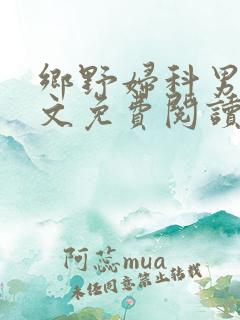 鄉野婦科男
文免費閱讀
阿蕊mua
未经同意禁止转载